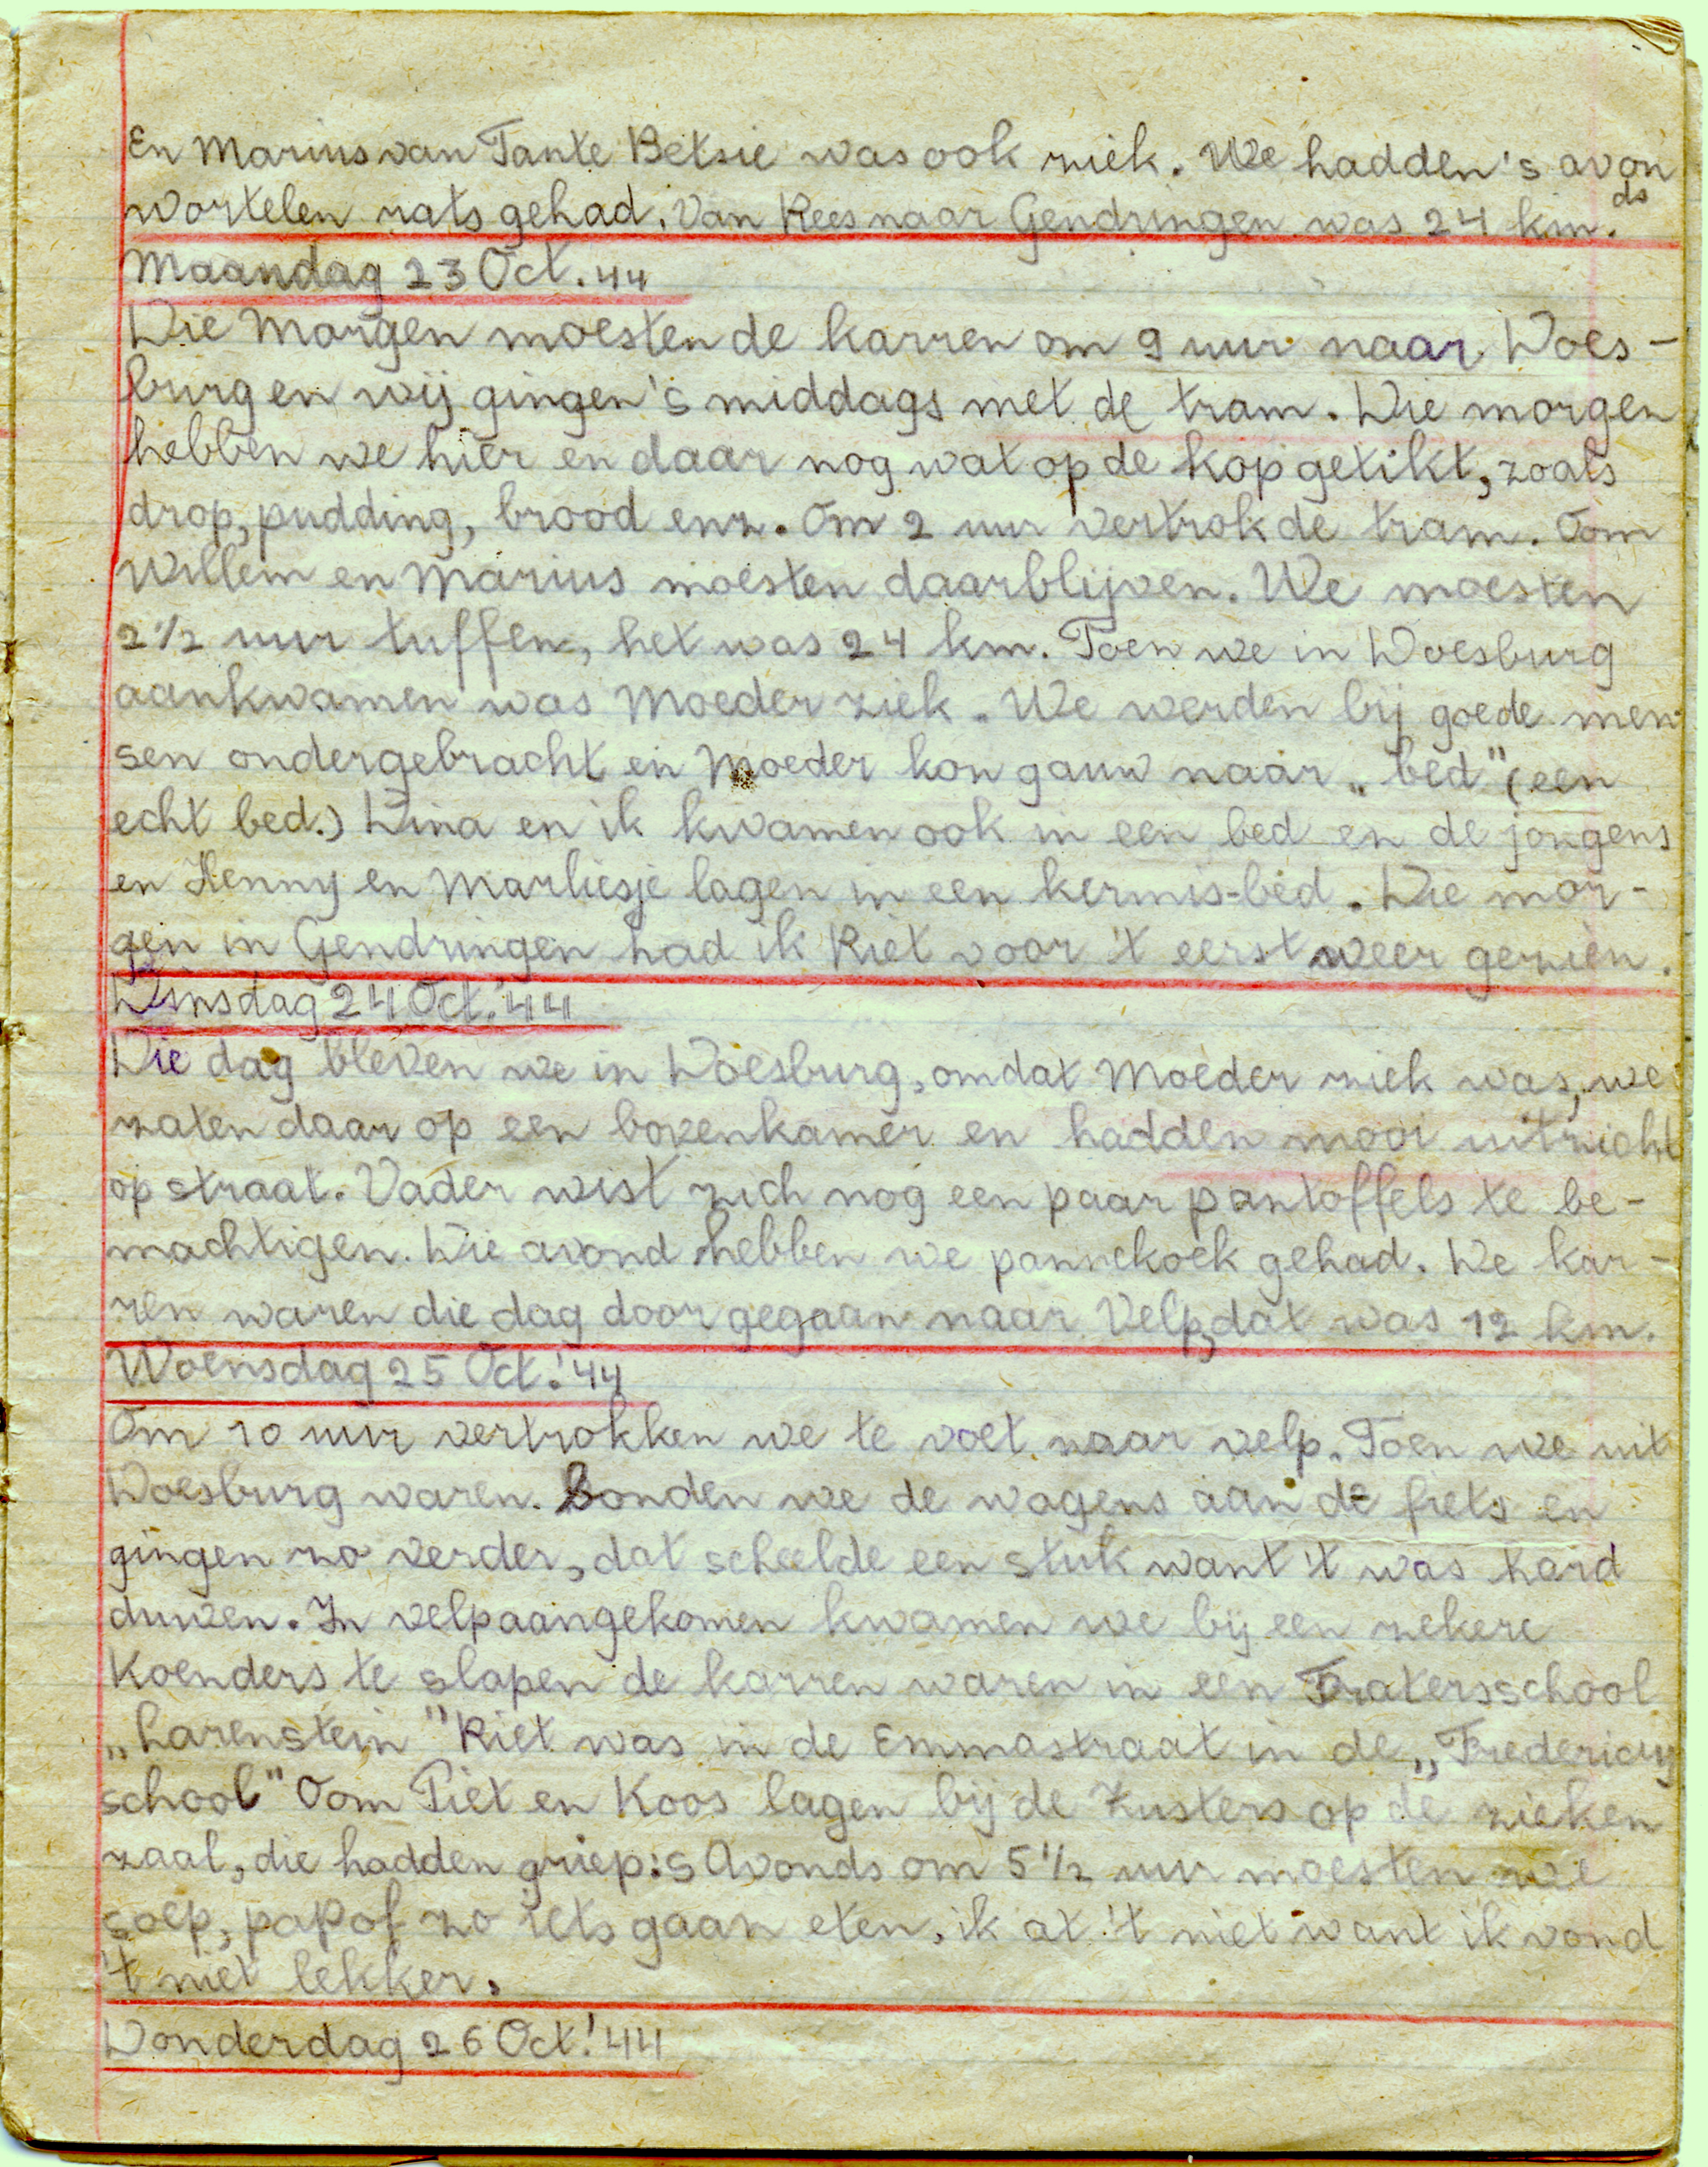 En Marius van Tante Betsie was ook ziek. We hadden 's avon
ds
wortelen rats gehad. Van Rees naar Gendringen was 24 km.
Maandag 23 Oct. 44
Die Morgen moesten de karren om 9 uur naar Does-
burg en wij gingen 's middags met de tram. Die morgen
hebben we hier en daar nog wat op de kop getikt, zoals
drop, pudding, brood enz. Om 2 uur vertrok de tram. Oom
Willem en Marius moesten daarblijven. We moesten
2 1/2 uur tuffen, het was 24 km. Toen we in Doesburg
aankwamen was Moeder ziek. We werden bij goede men
sen ondergebracht en Moeder kon gauw naar „bed" (een
echt bed.) Dina en ik kwamen ook in een bed en de jongens
en Henny en Marliesje lagen in een kermis-bed. Die mor-
gen in Gendringen had ik Riet voor 't eerst weer gezien.
Dinsdag 24 Oct. '44
Die dag bleven we in Doesburg, omdat Moeder ziek was, we
zaten daar op een bovenkamer en hadden mooi uitzicht
op straat. Vader wist zich nog een paar pantoffels te be-
machtigen. Die avond hebben we pannekoek gehad. De kar-
ren waren die dag doorgegaan naar Velp, dat was 12 km.
Woensdag 25 Oct. '44
Om 10 uur vertrokken we te voet naar velp. Toen we uit
Doesburg waren. Bonden we de wagens aan de fiets en
gingen zo verder, dat scheelde een stuk want 't was hard
duwen. In velp aangekomen kwamen we bij een zekere
Koenders te slapen de karren waren in een Fratersschool
„Larenstein" Riet was in de Emmastraat in de „Fredericus
school" Oom Piet en Koos lagen bij de Zusters op de zieken
zaal, die hadden griep. 's Avonds om 5 1/2 uur moesten we
soep, pap of zo iets gaan eten, ik at 't niet want ik vond
't niet lekker.
Donderdag 26 Oct. '44